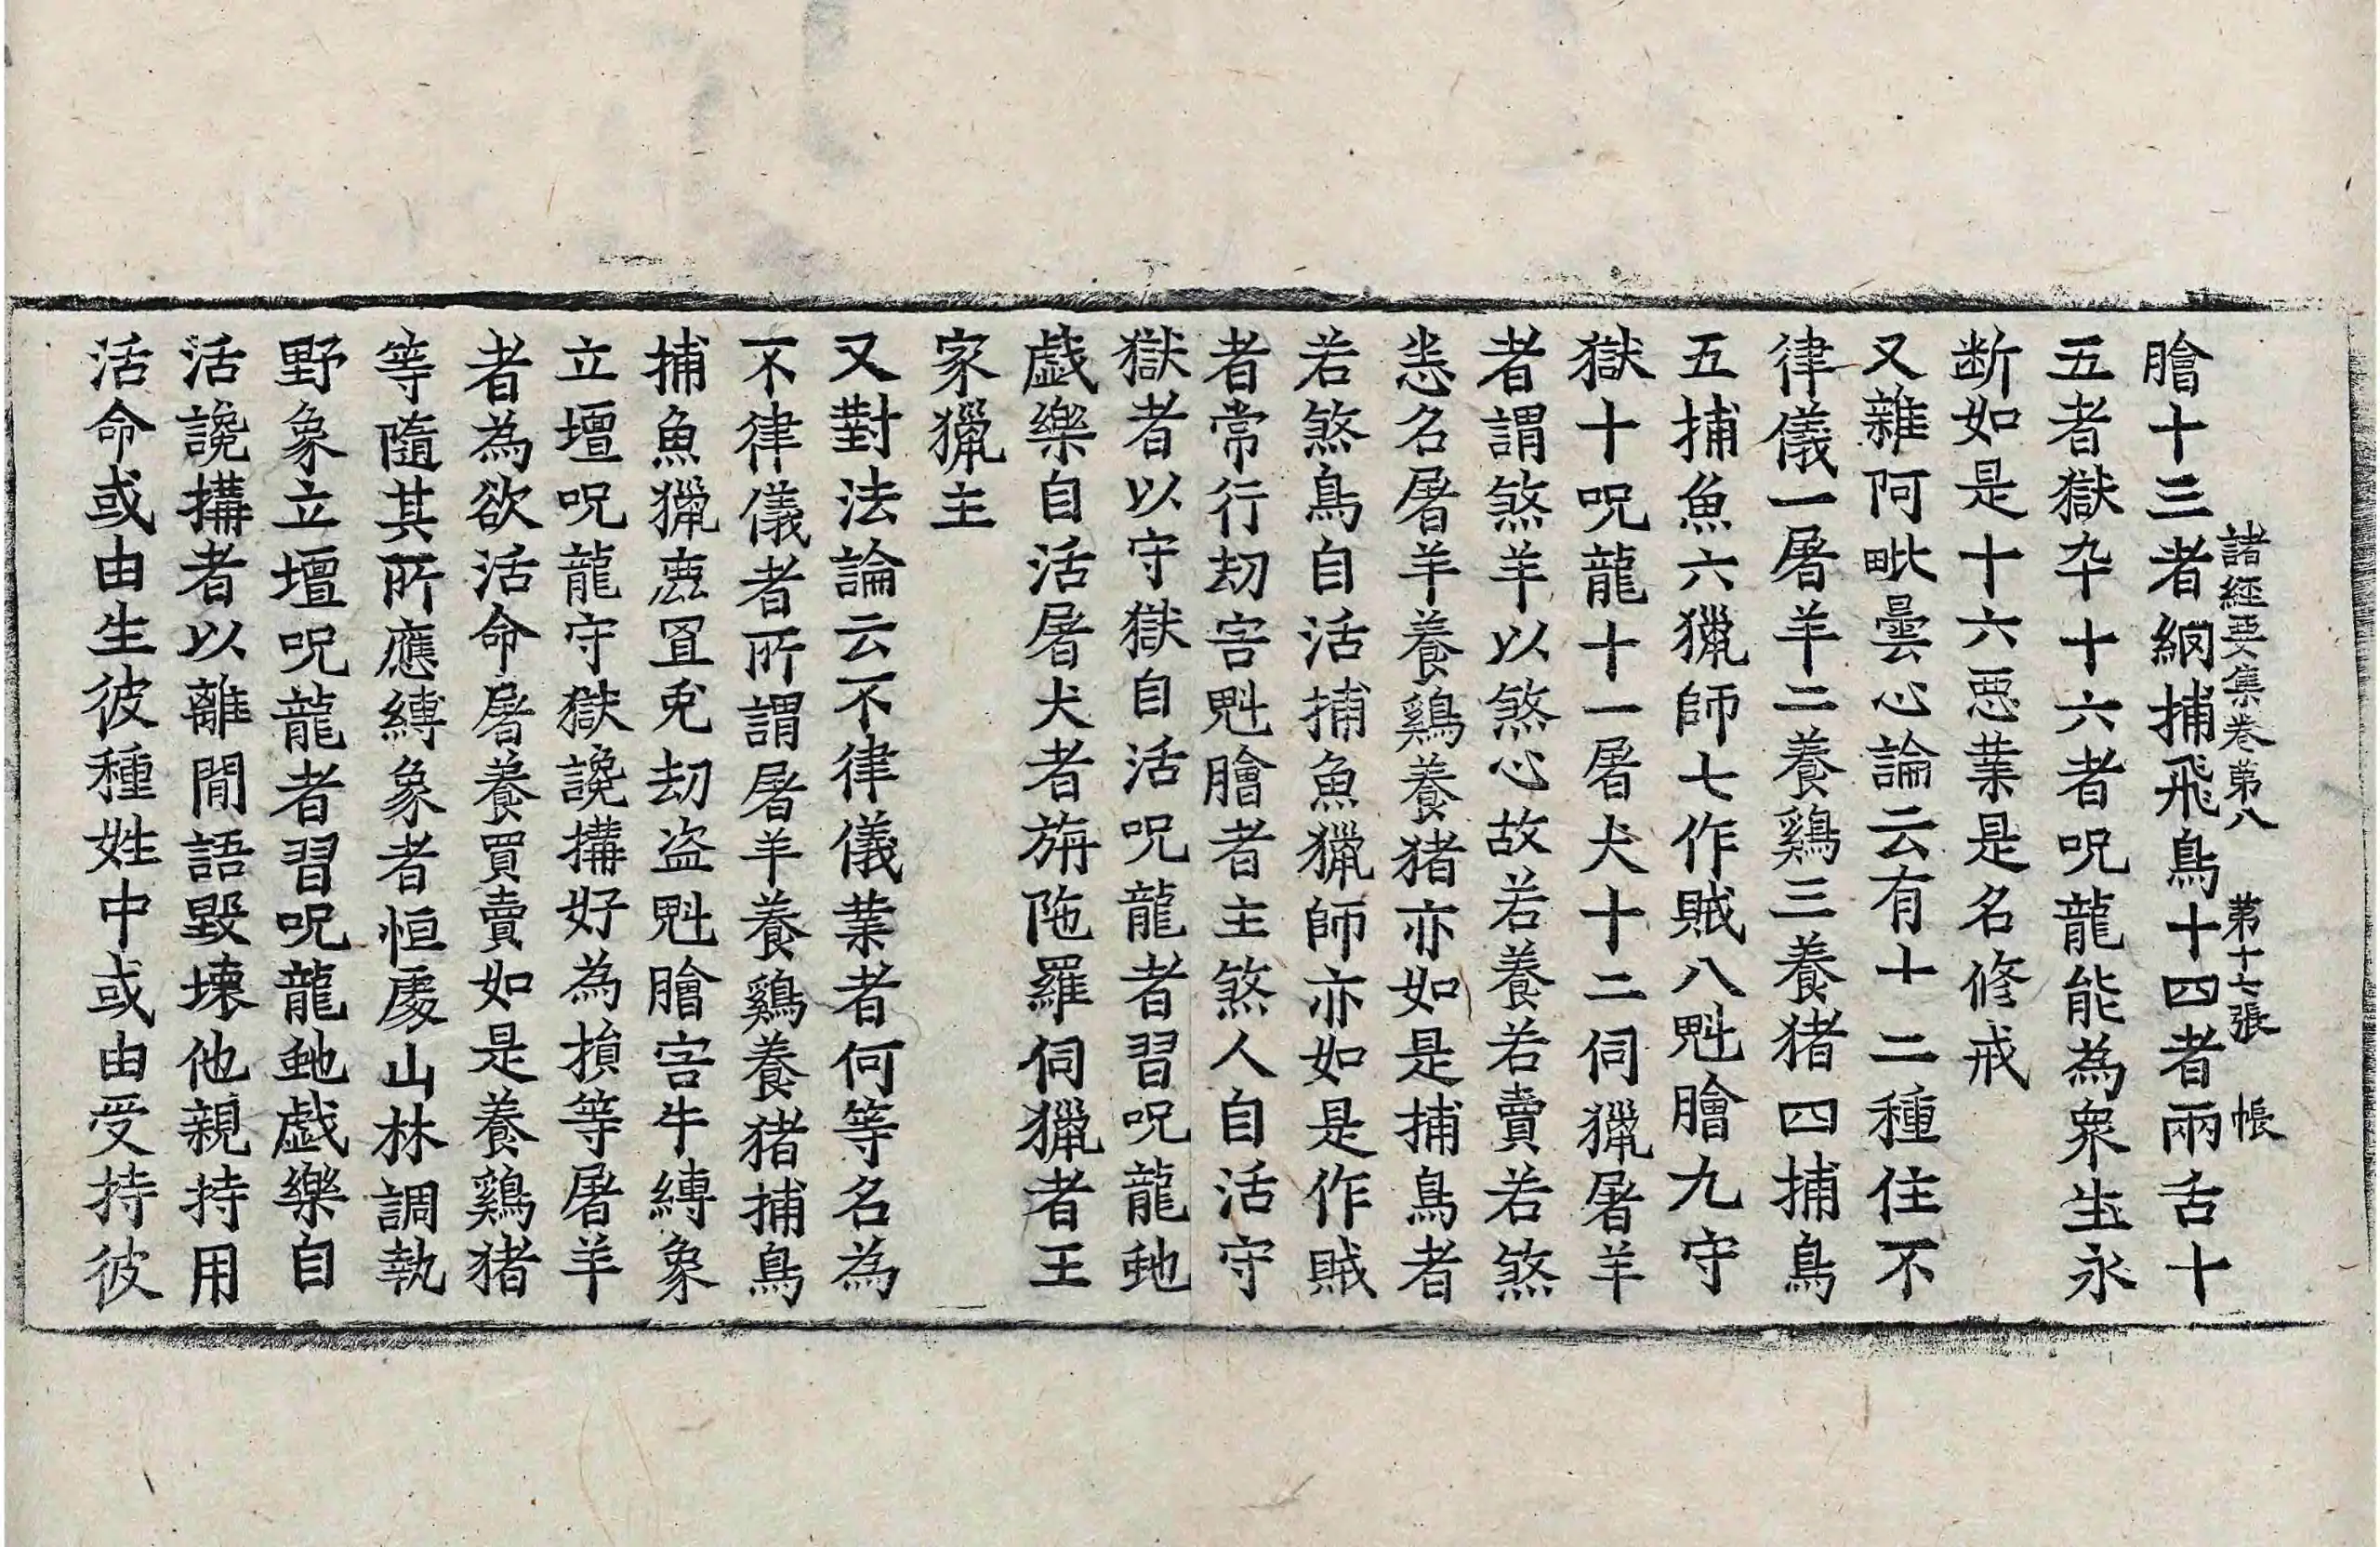 諸經要集卷第八 第十七張 帳
膾十三者網捕飛鳥十四者兩舌十
五者獄卒十六者呪龍能為衆生永
断如是十六惡業是名修戒
又雜阿毗曇心論云有十二種住不
律儀一屠羊二養鷄三養猪四捕鳥
五捕魚六獵師七作賊八魁膾九守
獄十呪龍十一屠犬十二伺獵屠羊
者謂煞羊以煞心故若養若賣若煞
悉名屠羊養鷄養猪亦如是捕鳥者
若煞鳥自活捕魚獵師亦如是作賊
者常行劫害魁膾者主煞人自活守
獄者以守獄自活呪龍者習呪龍虵
戱樂自活屠犬者旃陁羅伺獵者王
家獵主
又對法論云不律儀業者何等名為
不律儀者所謂屠羊養鷄養猪捕鳥
捕魚獵鹿罝兎劫盗魁膾害牛縛象
立壇呪龍守獄讒搆好為損等屠羊
者為欲活命屠養買賣如是養鷄猪
等隨其所應縛象者恒處山林調執
野象立壇呪龍者習呪龍虵戱樂自
活讒搆者以離間語毀壊他親持用
活命或由生彼種姓中或由受持彼